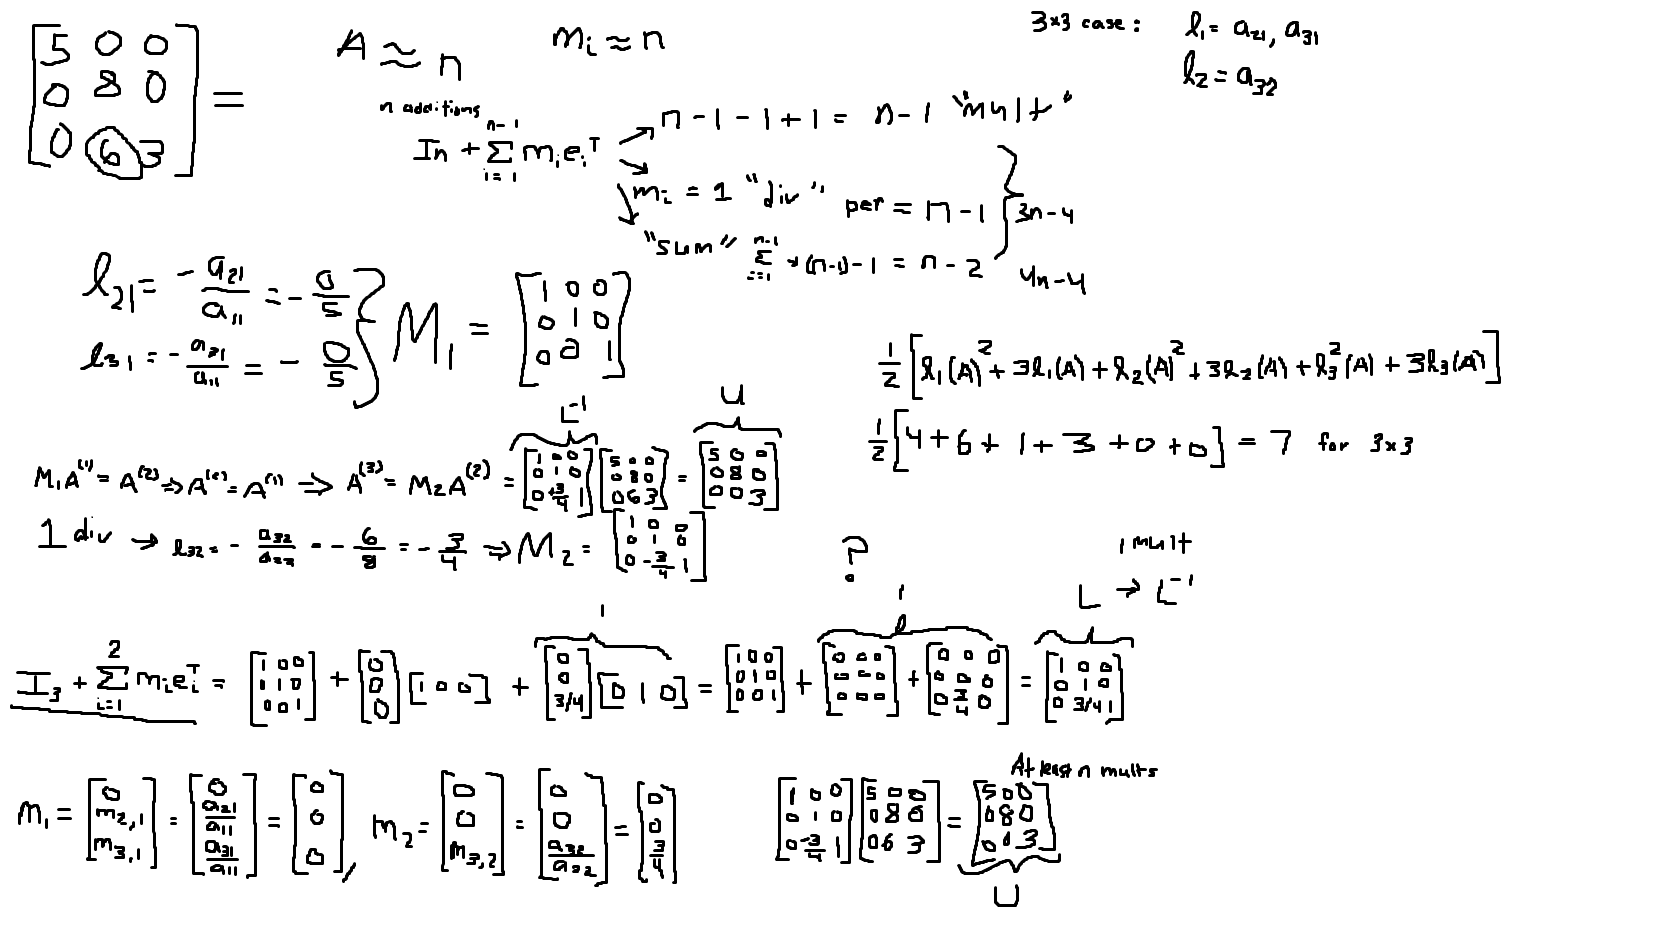 [5 0 0; 0 8 0; 0 6 3] =
A ≈ n
m_i ≈ n
3×3 case: l_1 = a_21, a_31
l_2 = a_32
n additions
I_n + Σ_{i=1}^{n-1} m_i e_i^T
→ n-1-1+1 = n-1 "mult"
→ m_i = 1 "div" per = n-1
"sum" Σ_{i=1}^{n-1} → (n-1)-1 = n-2
} 3n-4
4n-4
l_21 = -a_21/a_11 = -0/5
l_31 = -a_31/a_11 = -0/5
} M_1 = [1 0 0; 0 1 0; 0 0 1]
1/2 [l_1(A)^2 + 3l_1(A) + l_2(A)^2 + 3l_2(A) + l_3^2(A) + 3l_3(A)]
1/2 [4+6+1+3+0+0] = 7 for 3×3
L^-1
U
M_1A^(1) = A^(2) ⇒ A^(2) = A^(1) ⇒ A^(3) = M_2A^(2) = [1 0 0; 0 1 0; 0 +3/4 1] [5 0 0; 0 8 0; 0 6 3] = [5 0 0; 0 8 0; 0 0 3]
1 div → l_32 = -a_32/a_22 = -6/8 = -3/4 ⇒ M_2 = [1 0 0; 0 1 0; 0 -3/4 1]
?
1 mult
L → L^-1
1
1
L
I_3 + Σ_{i=1}^{2} m_i e_i^T = [1 0 0; 0 1 0; 0 0 1] + [0; 0; 0] [1 0 0] + [0; 0; 3/4] [0 1 0] = [1 0 0; 0 1 0; 0 0 1] + [0 0 0; 0 0 0; 0 0 0] + [0 0 0; 0 0 0; 0 3/4 0] = [1 0 0; 0 1 0; 0 3/4 1]
m_1 = [0; m_2,1; m_3,1] = [0; a_21/a_11; a_31/a_11] = [0; 0; 0], m_2 = [0; 0; m_3,2] = [0; 0; a_32/a_22] = [0; 0; 3/4]
At least n mults
[1 0 0; 0 1 0; 0 -3/4 1] [5 0 0; 0 8 0; 0 6 3] = [5 0 0; 0 8 0; 0 0 3]
U